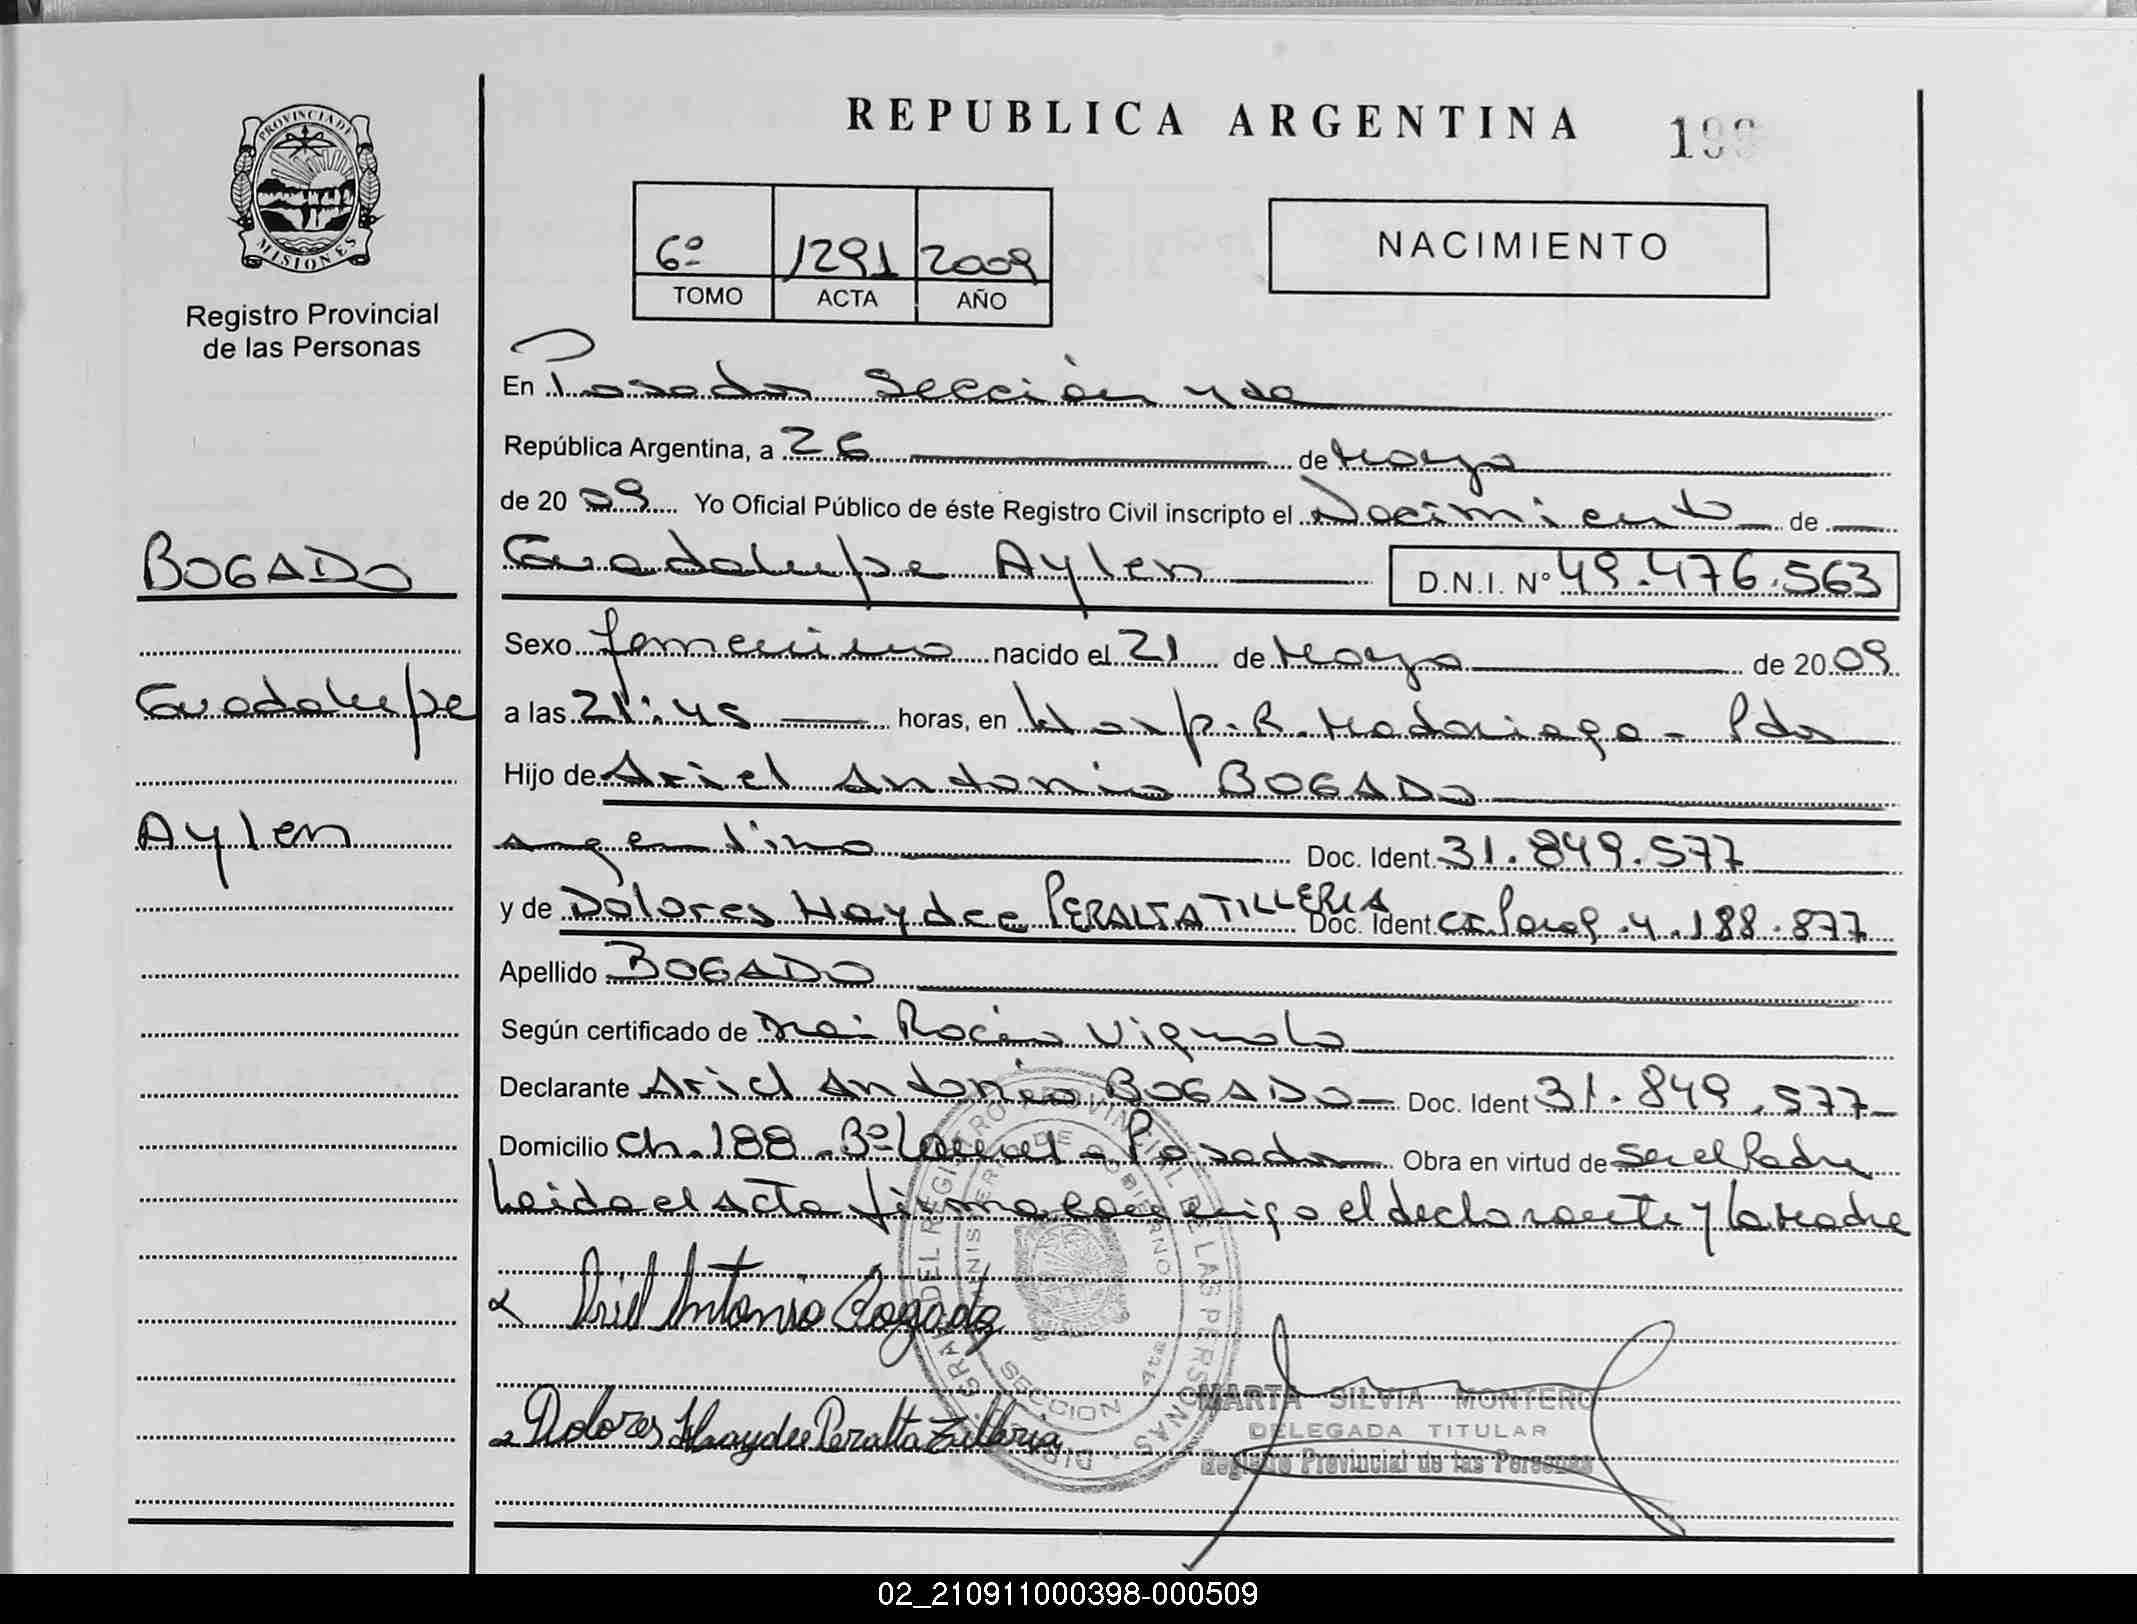 REPUBLICA ARGENTINA
PROVINCIA DE
MISIONES
Registro Provincial
de las Personas
6º 1291 2009
TOMO ACTA AÑO
NACIMIENTO
En Posadas Sección 4ta
República Argentina, a 26 de Mayo
de 2009 Yo Oficial Público de éste Registro Civil inscripto el Nacimiento de
BOGADO
Guadalupe Aylen D.N.I. Nº 49.476.563
Sexo femenino nacido el 21 de Mayo de 2009
Guadalupe
a las 21:45 horas, en Hosp. R. Madariaga - Pdas
Hijo de Ariel Antonio BOGADO
Aylen
argentino Doc. Ident. 31.849.577
y de Dolores Haydee PERALTA TILLERIA Doc. Ident CI. Parag. 4.188.877
Apellido BOGADO
Según certificado de Rocío Vignolo
Declarante Ariel Antonio BOGADO - Doc. Ident 31.849.577
Domicilio Ch. 188 - Bº - Posadas Obra en virtud de Ser el Padre
Leida el acta firma conmigo el declarante y la Madre
Ariel Antonio Bogado
Dolores Haydee Peralta Tilleria
DIRECCION GRAL. DEL REGISTRO PROVINCIAL DE LAS PERSONAS
MINISTERIO DE GOBIERNO
SECCION 4ta
MARTA SILVIA MONTERO
DELEGADA TITULAR
Registro Provincial de las Personas
02_210911000398-000509